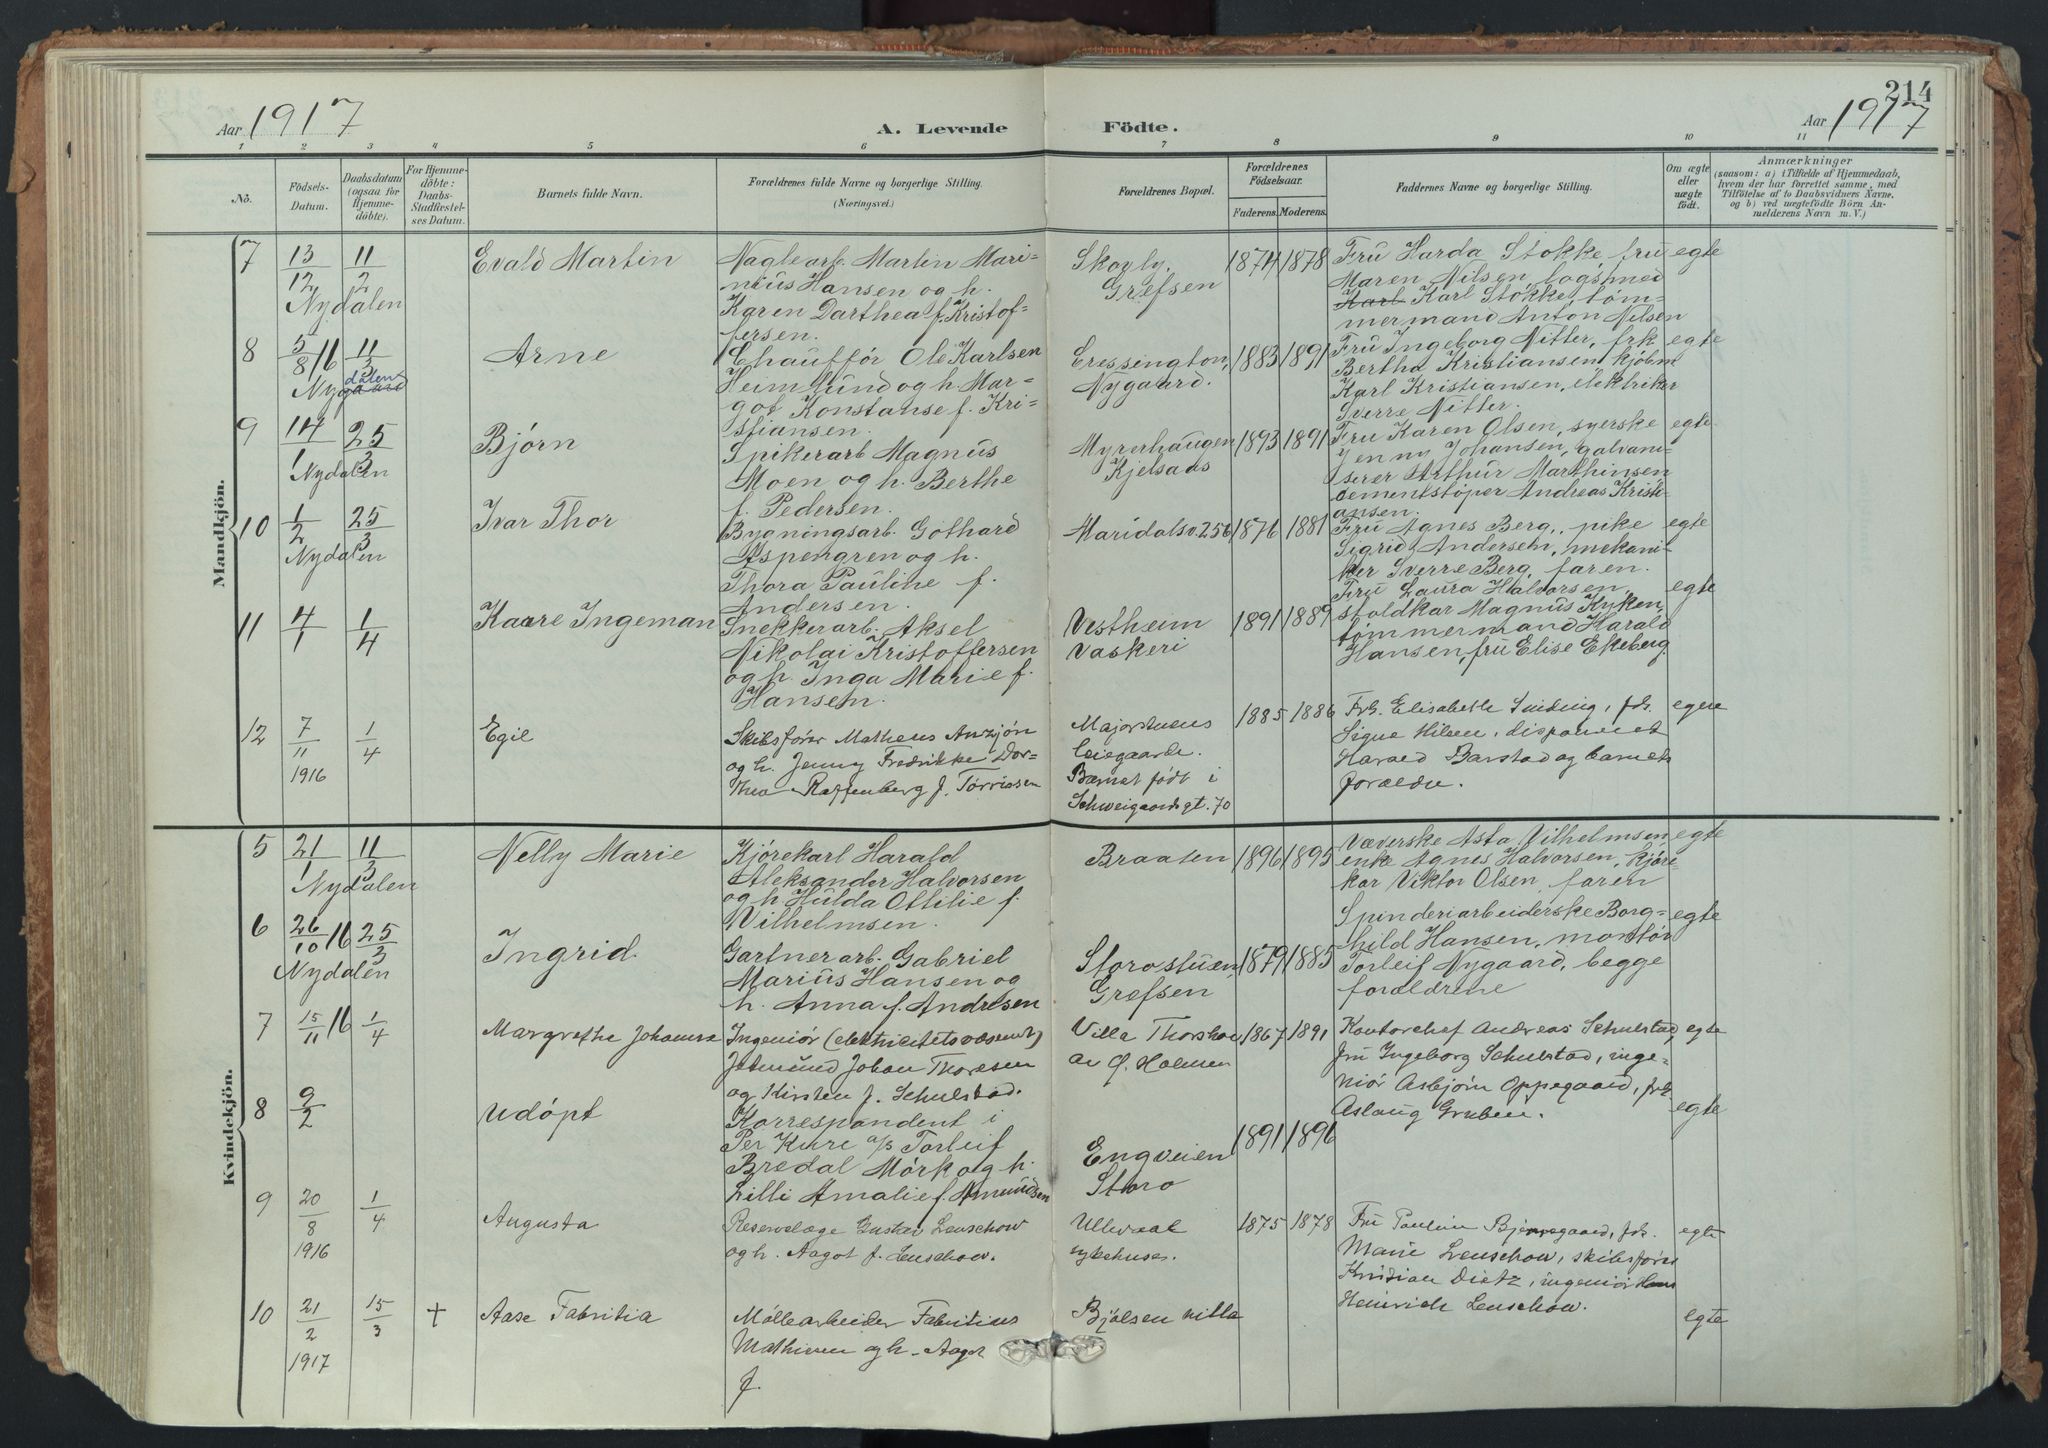 214
Aar 1917
A. Levende Födte.
Aar 1917
1 2 3 4 5 6 7 8 9 10 11
No.
Födsels-Datum.
Daabsdatum (ogsaa for Hjemme-döbte).
For Hjemme-döbte: Daabs-Stadfæstel-ses Datum.
Barnets fulde Navn.
Forældrenes fulde Navne og borgerlige Stilling.
(Næringsvei.)
Forældrenes Bopæl.
Forældrenes Födselsaar.
Faderens. Moderens.
Faddernes Navne og borgerlige Stilling.
Om ægte eller uægte födt.
Anmærkninger
(saasom: a) i Tilfælde af Hjemmedaab,
hvem der har forrettet samme, med
Tilföielse af to Daabsvidners Navne,
og b) ved uægtefödte Börn An-
melderens Navn m. V.)
Mandkjön.
7 13/12 11/2 Evald Martin
Nydalen
Naglearb. Martin Mari-
nius Hansen og h.
Karen Darthea f. Kristof-
fersen.
Skovly,
Grefsen
1874 1878
Fru Harda Stokke, fru
Maren Nilsen, bogsmed
Karl Karl Stokke, töm-
mermand Anton Nilsen
egte
8 5/8 16 11/3 Arne
Nydalen
Chaufför Ole Karlsen
Heimlund og h. Mar-
got Konstanse f. Kri-
stiansen.
Cressington,
Nygaard.
1883 1891
Fru Ingeborg Nitter, frk
Bertha Kristiansen, kjöbm
Karl Kristiansen, elektriker
Sverre Nitter.
egte
9 14/1 25/3 Björn
Nydalen
Spikerarb Magnus
Moen og h. Berthe
f. Pedersen.
Myrerhaugen
Kjelsaas
1893 1891
Fru Karen Olsen, syerske
Jenny Johansen, galvani-
serer Arthur Marthinsen
cementstöper Andreas Kristi-
ansen.
egte
10 1/2 25/3 Ivar Thor
Nydalen
Bygningsarb. Gothard
Aspengren og h.
Thora Pauline f.
Andersen.
Maridalsv. 256
1876 1881
Fru Agnes Berg, pike
Sigrid Andersen, mekani-
ker Sverre Berg, faren.
egte
11 4/1 1/4 Kaare Ingeman
Snekkerarb. Aksel
Nikolai Kristoffersen
og h. Inga Marie f.
Hansen.
Vestheim
vaskeri
1891 1889
Fru Laura Halvorsen,
staldkar Magnus Kyken,
tömmermand Harald
Hansen, fru Elise Ekeberg.
egte
12 7/11 1916 1/4 Egil
Skibsförer Matheus Anzjön
og h. Jenny Fredrikke Dor-
thea Raffenberg f. Törrissen
Majorstuens
leiegaarde.
Barnet födt i
Schweigaardsgt. 70
1885 1886
Frk. Elisabeth Sinding, frk.
Signe Hilsen, disponent
Harald Barstad og barnets
forældre.
egte
Kvindekjön.
5 21/1 11/3 Nelly Marie
Nydalen
Kjörekarl Harald
Aleksander Halvorsen
og h Hulda Ottilie f.
Vilhelmsen.
Braaten
1896 1895
Væverske Asta Vilhelmsen,
enke Agnes Halvorsen, kjöre-
kar Viktor Olsen, faren
egte
6 26/10 16 25/3 Ingrid.
Nydalen
Gartnerarb. Gabriel
Marius Hansen og
h. Anna f. Andresen
Storostuen,
Grefsen
1879 1885
Spinderiarbeiderske Borg-
hild Hansen, montör
Torleif Nygaard, begge
forældrene
egte
7 15/11 16 1/4 Margrethe Johanne
Ingeniör (elektricitetsvæsenet)
Jotmund Johan Thoresen
og Kirsten f. Schulstad.
Villa Thorshov
av G. Holmen
1867 1891
Kontorchef Andreas Schulstad,
fru Ingeborg Schulstad, inge-
niör Asbjörn Oppegaard, frk.
Aslaug Gruben.
egte
8 9/2 udöpt
Korrespondent i
Per Kure a/s Torleif
Bredal Mörk og h.
Lilli Amalie f. Amundsen
Engveien
Storo
1891 1896
egte
9 20/8 1916 1/4 Augusta
Reservelæge Gustav Leuschow
og h. Aagot f. Leuschow.
Ullevaal
sykehuses.
1875 1878
Fru Pauline Bjerregaard, frk.
Marie Leuschow, skibsförer
Kristian Dietz, ingeniör Hans
Heinrich Leuschow.
egte
10 21/2 1917 15/3 + Aase Fabritia
Möllearbeider Fabritius
Mathisen og h. Aagot
f.
Bjölsen villa
egte